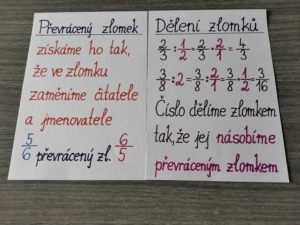 Převrácený zlomek
získáme ho tak,
že ve zlomku
zaměníme čitatele
a jmenovatele
5/6 převrácený zl. 6/5
Dělení zlomků
2/3 : 1/2 = 2/3 · 2/1 = 4/3
3/8 : 2 = 3/8 : 2/1 = 3/8 · 1/2 = 3/16
Číslo dělíme zlomkem
tak, že jej násobíme
převráceným zlomkem